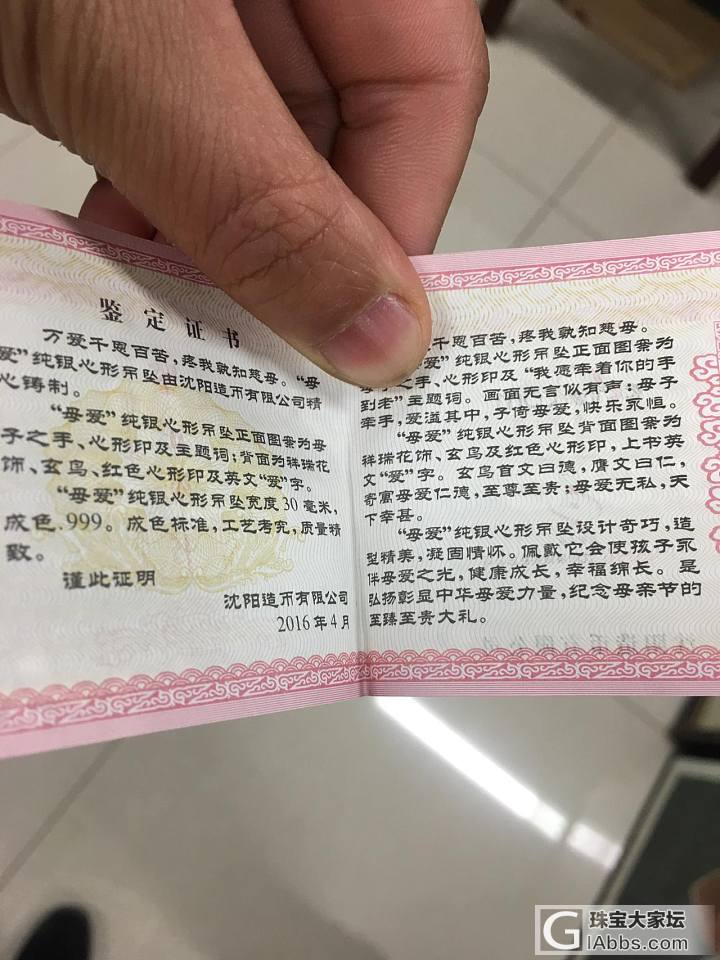 鉴定证书
万爱千恩百苦，疼我孰知慈母。“母
爱”纯银心形吊坠由沈阳造币有限公司精
心铸制。
“母爱”纯银心形吊坠正面图案为母
子之手、心形印及主题词；背面为祥瑞花
饰、玄鸟、红色心形印及英文“爱”字。
“母爱”纯银心形吊坠宽度30毫米，
成色.999。成色标准，工艺考究，质量精
致。
谨此证明
沈阳造币有限公司
2016年4月
千恩百苦，疼我孰知慈母。
爱”纯银心形吊坠正面图案为
之手、心形印及“我愿牵着你的手
到老”主题词。画面无言似有声：母子
牵手，爱溢其中，子倚母爱，快乐永恒。
“母爱”纯银心形吊坠背面图案为
祥瑞花饰、玄鸟及红色心形印，上书英
文“爱”字。玄鸟首文曰德，膺文曰仁，
寄寓母爱仁德，至尊至贵；母爱无私，天
下幸甚。
“母爱”纯银心形吊坠设计奇巧，造
型精美，凝固情怀。佩戴它会使孩子永
伴母爱之光，健康成长，幸福绵长。是
弘扬彰显中华母爱力量，纪念母亲节的
至臻至贵大礼。
G 珠宝大家坛
GIAbbs.com